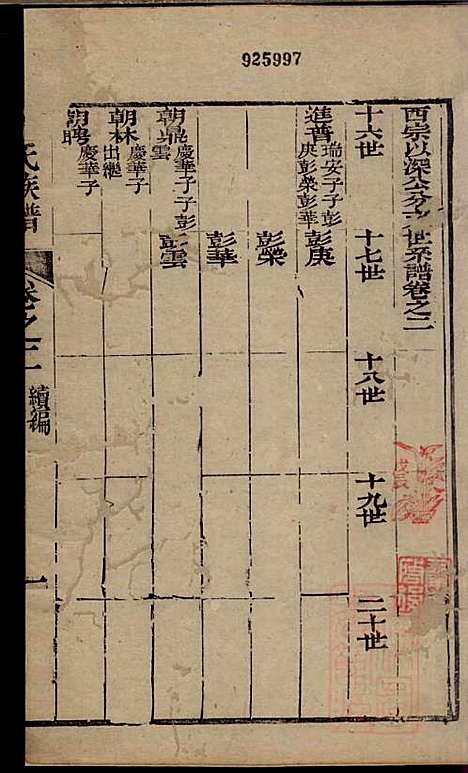 925997
西宗以深公分 世系譜卷之二
十六世 十七世 十八世 十九世 二十世
進普 瑞安子子彭庚彭榮彭華 彭庚
彭榮
彭華
朝鼎 慶華子子彭雲 彭雲
朝林 慶華子出繼
朝聘 慶華子
氏族譜 卷之二 續編 一